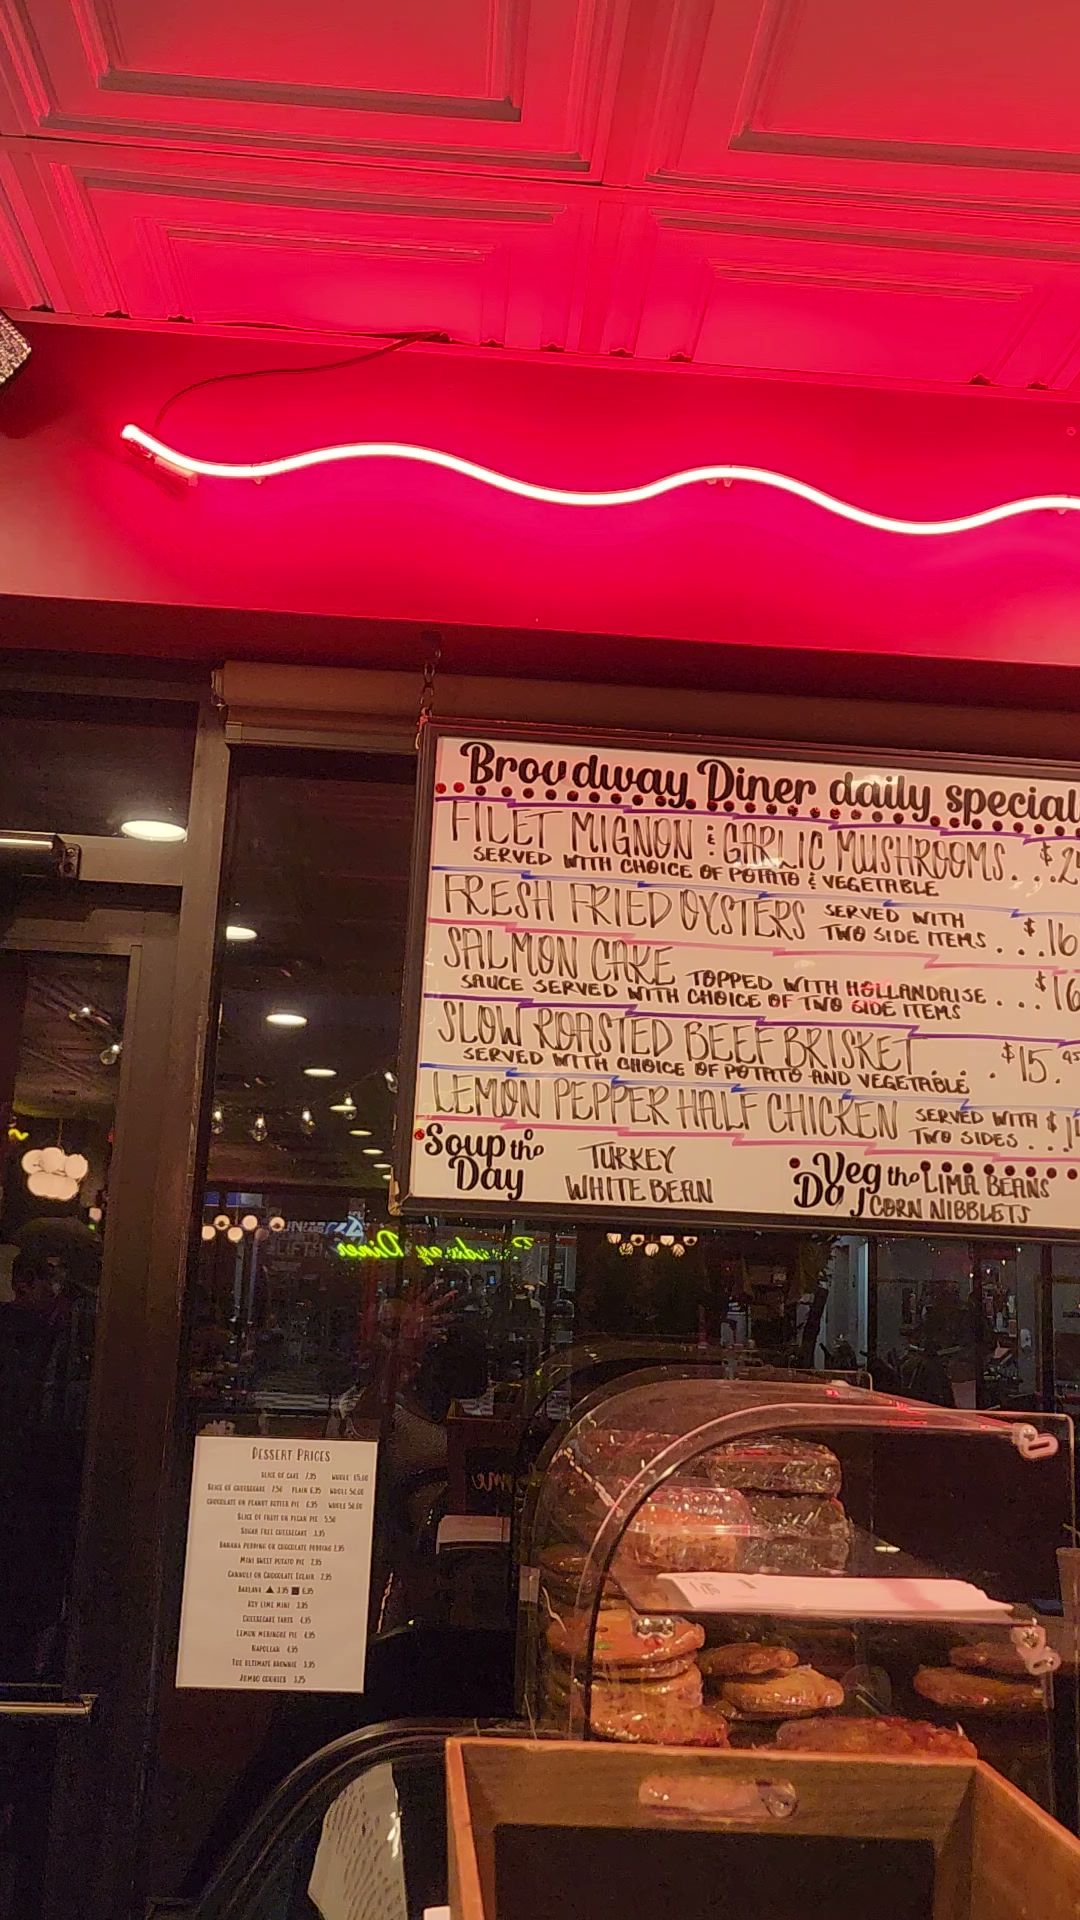 Broadway Diner daily special
FILET MIGNON & GARLIC MUSHROOMS. . . $2
SERVED WITH CHOICE OF POTATO & VEGETABLE
FRESH FRIED OYSTERS SERVED WITH
TWO SIDE ITEMS. . . $16
SALMON CAKE TOPPED WITH HOLLANDAISE . . . $16
SAUCE SERVED WITH CHOICE OF TWO SIDE ITEMS
SLOW ROASTED BEEF BRISKET . . . $15.95
SERVED WITH CHOICE OF POTATO AND VEGETABLE
LEMON PEPPER HALF CHICKEN SERVED WITH $14
TWO SIDES . . .
Soup the Day
TURKEY
WHITE BEAN
Veg the Day
LIMA BEANS
CORN NIBBLETS
Broadway Diner
DESSERT PRICES
SLICE OF CAKE 7.95 WHOLE
SLICE OF CHEESECAKE 7.50 PLAIN 6.95 WHOLE 50.00
CHOCOLATE OR PEANUT BUTTER PIE 6.95 WHOLE 50.00
SLICE OF FRUIT OR PECAN PIE 5.50
SUGAR FREE CHEESECAKE 3.95
BANANA PUDDING OR CHOCOLATE PUDDING 2.95
MINI SWEET POTATO PIE 2.95
CANNOLI OR CHOCOLATE ECLAIR 2.95
BAKLAVA ▲ 3.95 ■ 6.95
KEY LIME MINI 3.95
CHEESECAKE TARTS 4.95
LEMON MERINGUE PIE 4.95
NAPOLEAN 4.95
THE ULTIMATE BROWNIE 3.95
JUMBO COOKIES 3.25